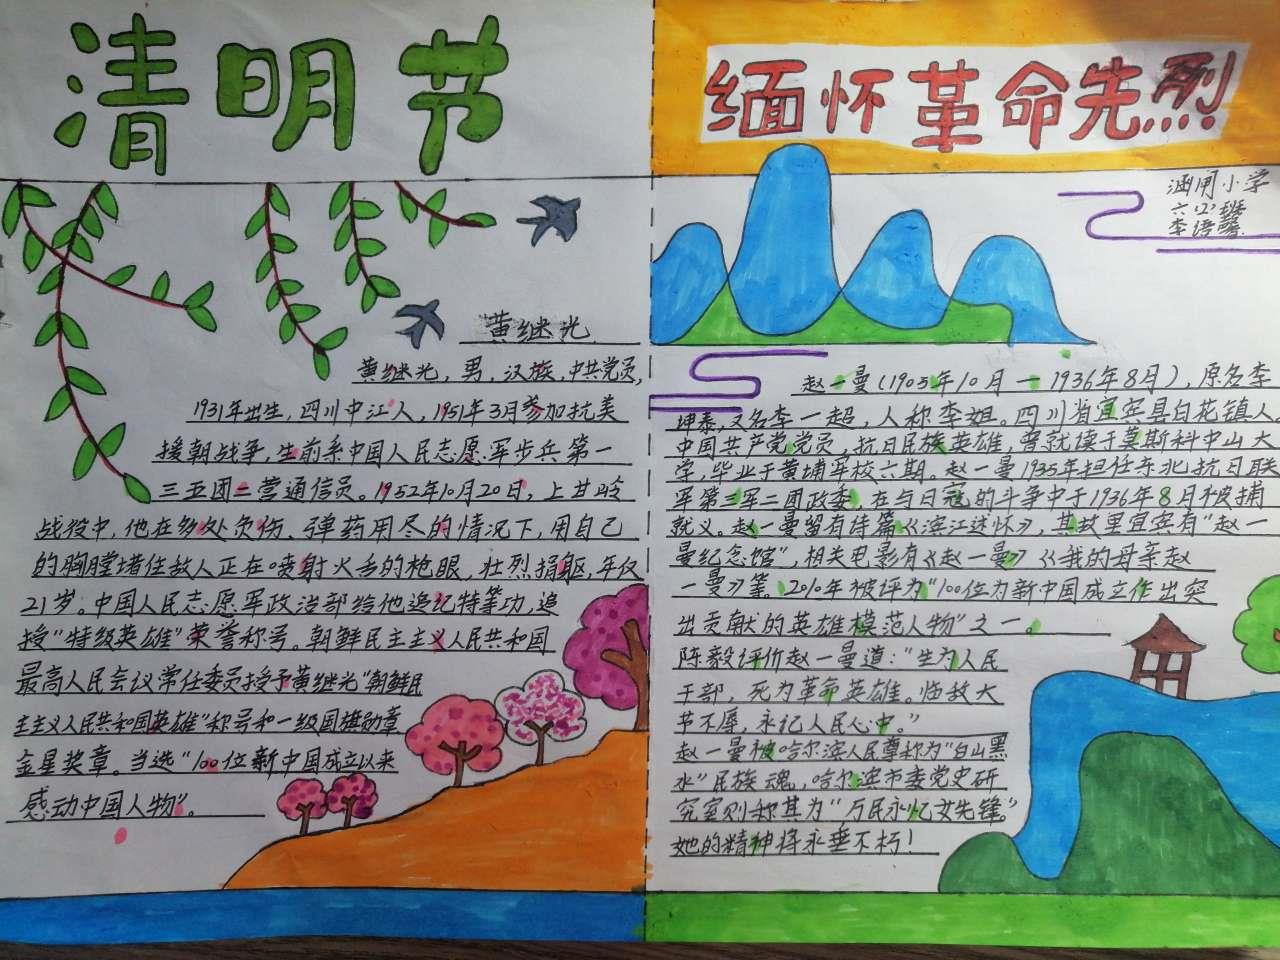 清明节
黄继光
黄继光，男，汉族，中共党员，
1931年出生，四川中江人，1951年3月参加抗美
援朝战争，生前系中国人民志愿军步兵第一
三五团二营通信员。1952年10月20日，上甘岭
战役中，他在多处负伤、弹药用尽的情况下，用自己
的胸膛堵住敌人正在喷射火舌的枪眼，壮烈捐躯，年仅
21岁。中国人民志愿军政治部给他追记特等功，追
授“特级英雄”荣誉称号。朝鲜民主主义人民共和国
最高人民会议常任委员授予黄继光“朝鲜民
主主义人民共和国英雄”称号和一级国旗勋章
金星奖章。当选“100位新中国成立以来
感动中国人物”。
缅怀革命先烈
涵闸小学
六（2）班
李语馨
赵一曼（1905年10月—1936年8月），原名李
坤泰，又名李一超，人称李姐。四川省宜宾县白花镇人
中国共产党党员，抗日民族英雄，曾就读于莫斯科中山大
学，毕业于黄埔军校六期。赵一曼1935年担任东北抗日联
军第三军二团政委，在与日寇的斗争中于1936年8月被捕
就义。赵一曼留有诗篇《滨江述怀》，其故里宜宾有“赵一
曼纪念馆”，相关电影有《赵一曼》《我的母亲赵
一曼》等。2010年被评为“100位为新中国成立作出突
出贡献的英雄模范人物”之一。
陈毅评价赵一曼道：“生为人民
干部，死为革命英雄。临敌大
节不辱，永记人民心中。”
赵一曼被哈尔滨人民尊称为“白山黑
水”民族魂，哈尔滨市委党史研
究室则称其为“万民永忆女先锋。”
她的精神将永垂不朽！